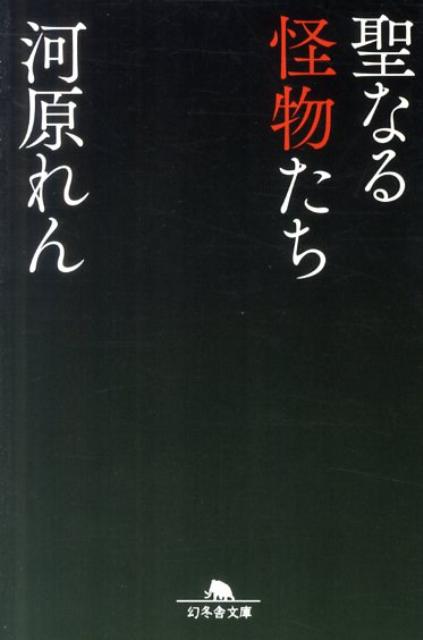 聖なる
怪物たち
河原れん
幻冬舎文庫